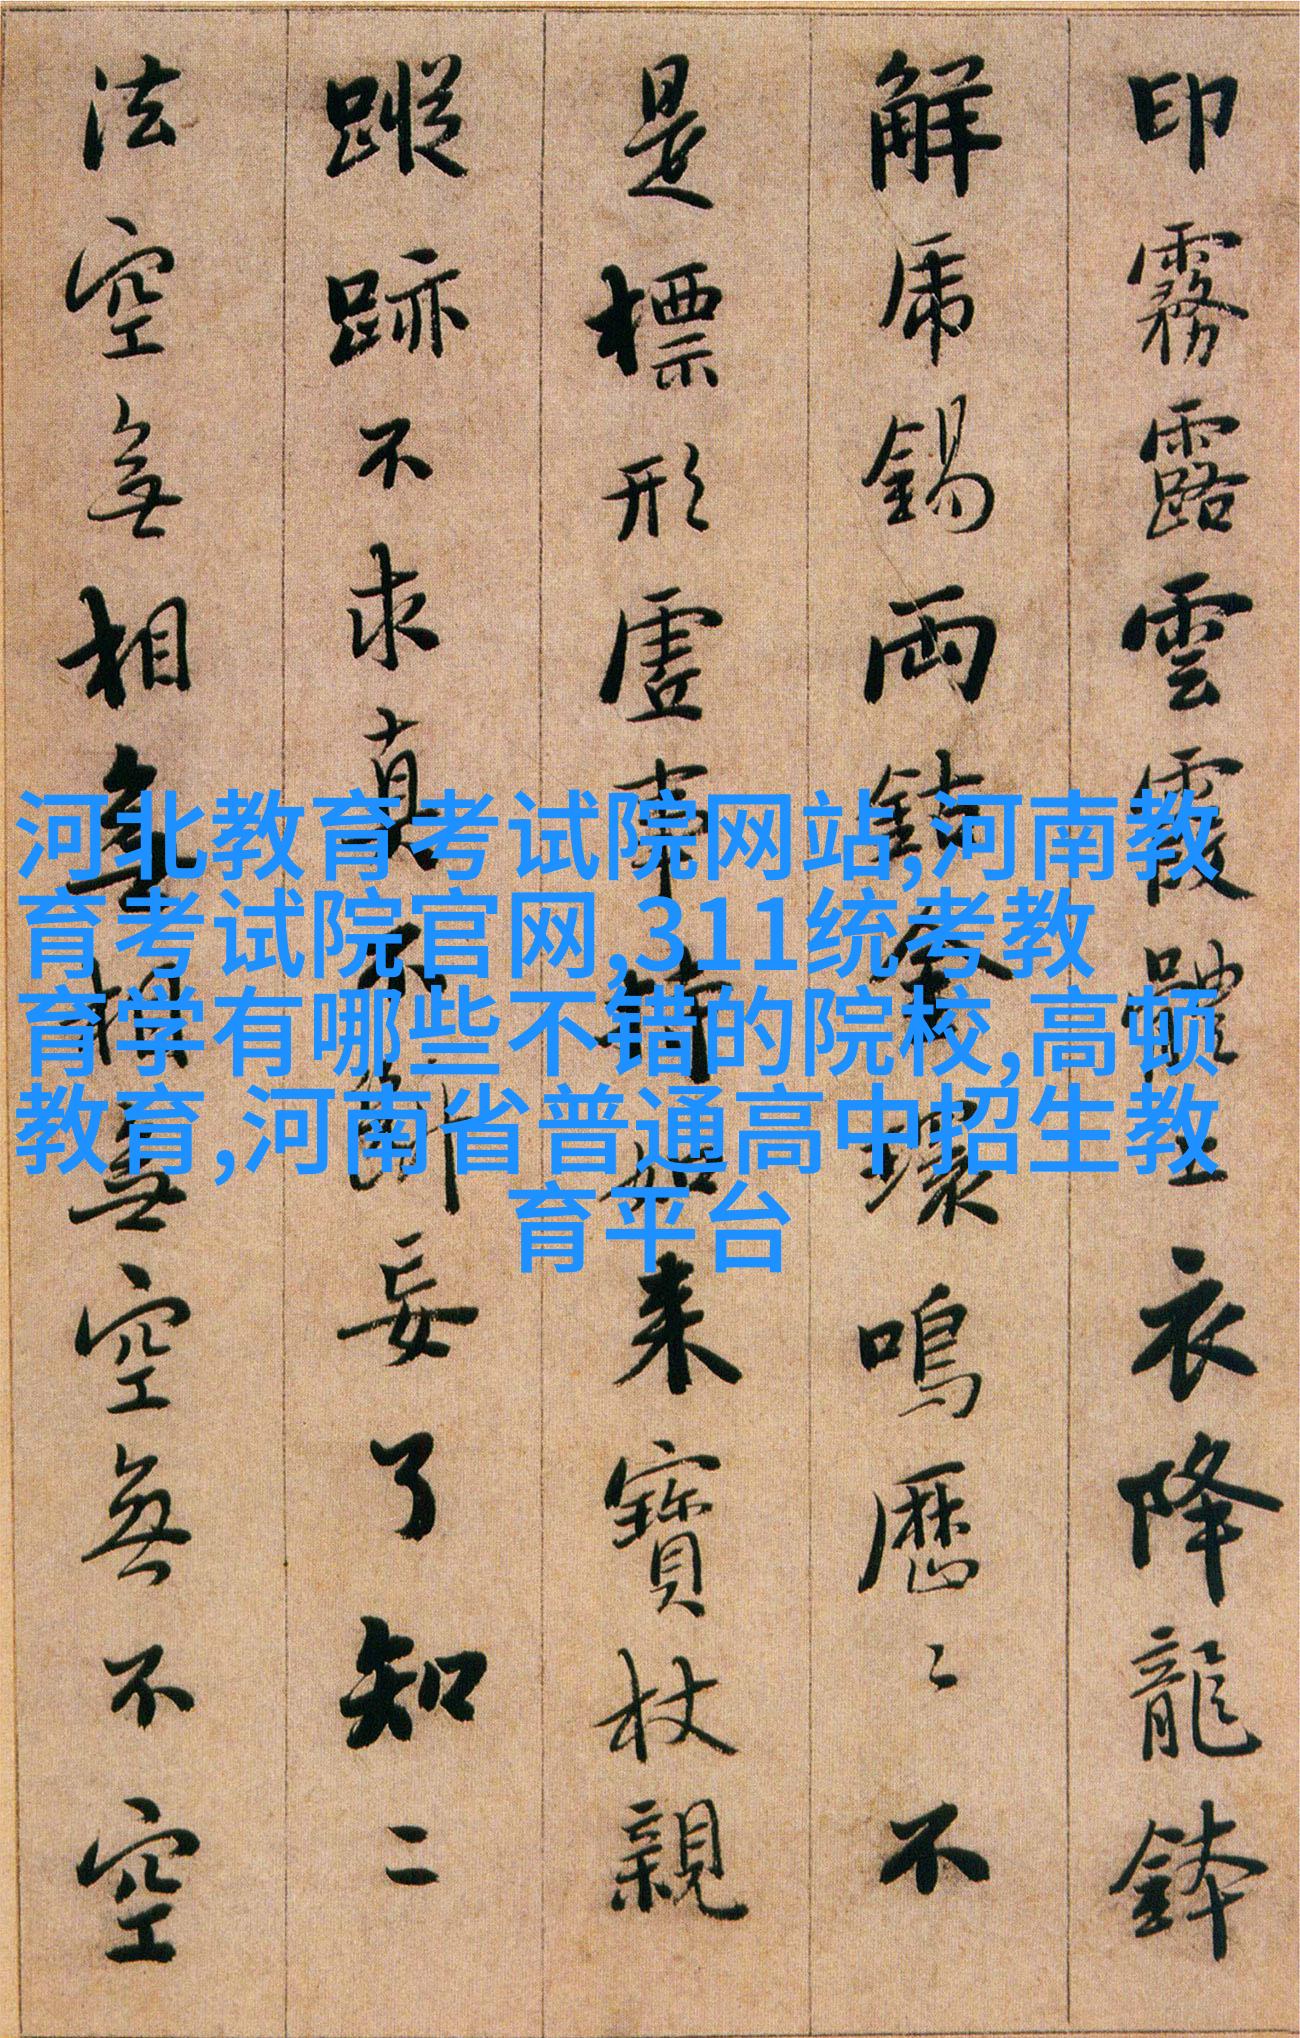 印霧露雲霞體上衣降龍鉢
解虎錫兩鈷金環鳴歷々不
是標形虛事持如来寶杖親
蹤跡不求真不斷妄了知二
法空無相無相無空無不空
河北教育考试院网站,河南教
育考试院官网,311统考教
育学有哪些不错的院校,高顿
教育,河南省普通高中招生教
育平台